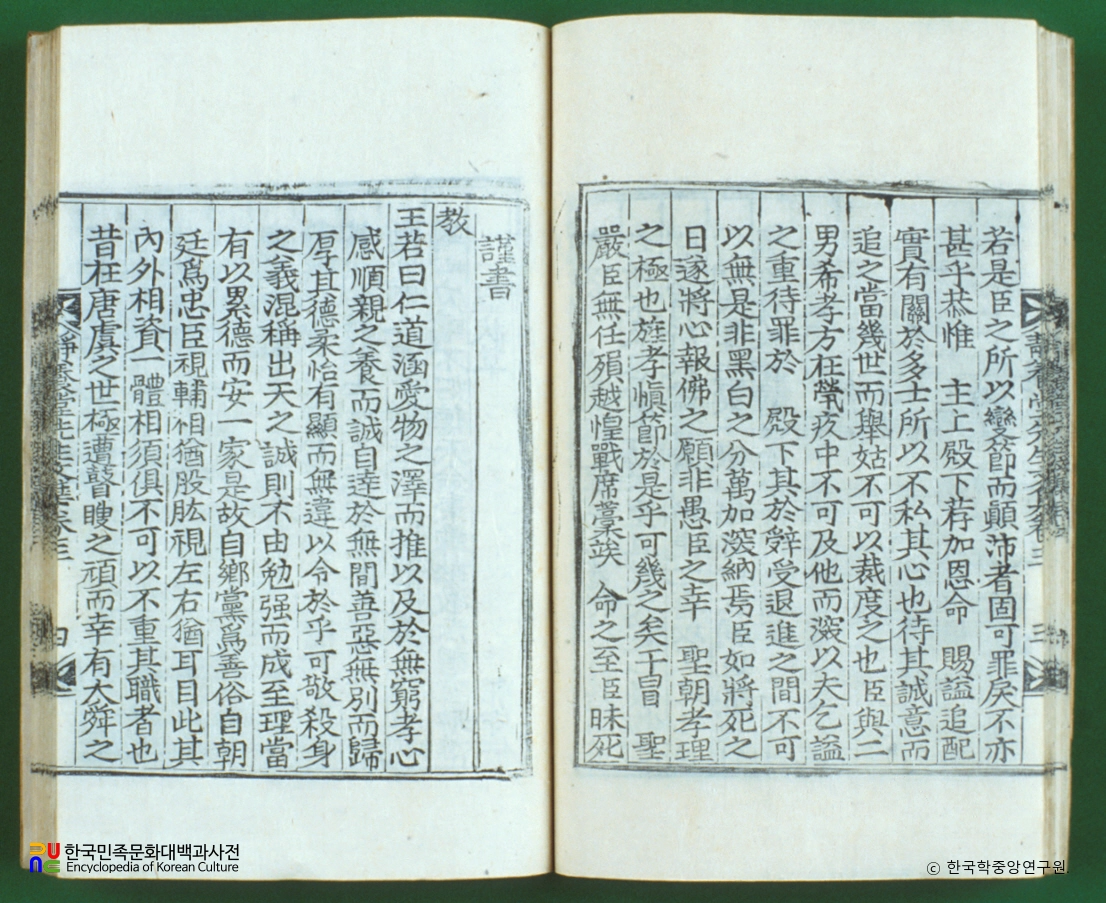 若是臣之所以變節而顚沛者固可罪戾不亦
甚乎恭惟 主上殿下若加恩命 賜謚追配
實有關於多士所以不私其心也待其誠意而
追之當幾世而舉姑不可以裁度之也臣與二
男希孝方在㷀疚中不可及他而深以夫乞謚
之重待罪於 殿下其於辤受退進之間不可
以無是非黑白之分萬加深納焉臣如將死之
日遂將心報佛之願非愚臣之幸 聖朝孝理
之極也旌孝愼節於是乎可幾之矣干冒 聖
嚴臣無任殞越惶戰席藁竢 命之至臣昧死
謹書
敎
王若曰仁道涵愛物之澤而推以及於無窮孝心
感順親之養而誠自達於無間善惡無別而歸
厚其德柔怡有顯而無違以令於乎可敬殺身
之義混稱出天之誠則不由勉强而成至理當
有以累德而安一家是故自鄕黨爲善俗自朝
廷爲忠臣視輔相猶股肱視左右猶耳目此其
內外相資一體相須俱不可以不重其職者也
昔在唐虞之世極遭瞽瞍之頑而幸有大舜之
四
한국민족문화대백과사전
Encyclopedia of Korean Culture
ⓒ 한국학중앙연구원